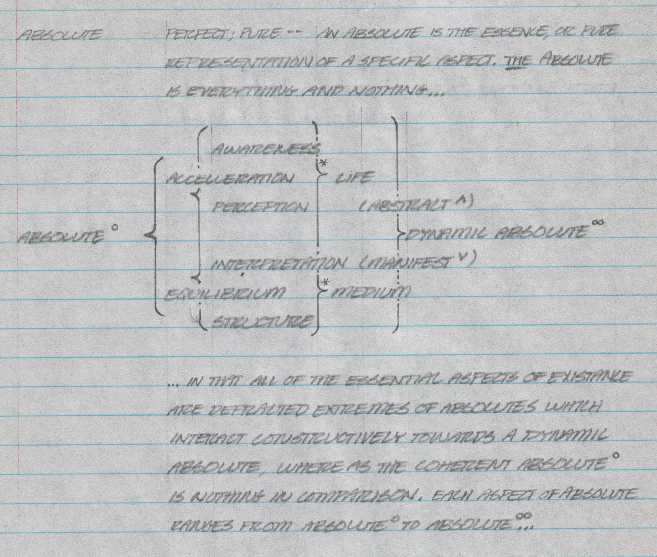 ABSOLUTE PERFECT; PURE -- AN ABSOLUTE IS THE ESSENCE, OR PURE
REPRESENTATION OF A SPECIFIC ASPECT. THE ABSOLUTE
IS EVERYTHING AND NOTHING...
AWARENESS
ACCELLERATION * LIFE
PERCEPTION (ABSTRACT ^)
ABSOLUTE° DYNAMIC ABSOLUTE∞
INTERPRETATION (MANIFEST ˅)
EQUILIBRIUM * MEDIUM
STRUCTURE
... IN THAT ALL OF THE ESSENTIAL ASPECTS OF EXISTANCE
ARE DEFRACTED EXTREMES OF ABSOLUTES WHICH
INTERACT CONSTRUCTIVELY TOWARDS A DYNAMIC
ABSOLUTE, WHERE AS THE COHERENT ABSOLUTE°
IS NOTHING IN COMPARISON. EACH ASPECT OF ABSOLUTE
RANGES FROM ABSOLUTE° TO ABSOLUTE∞...